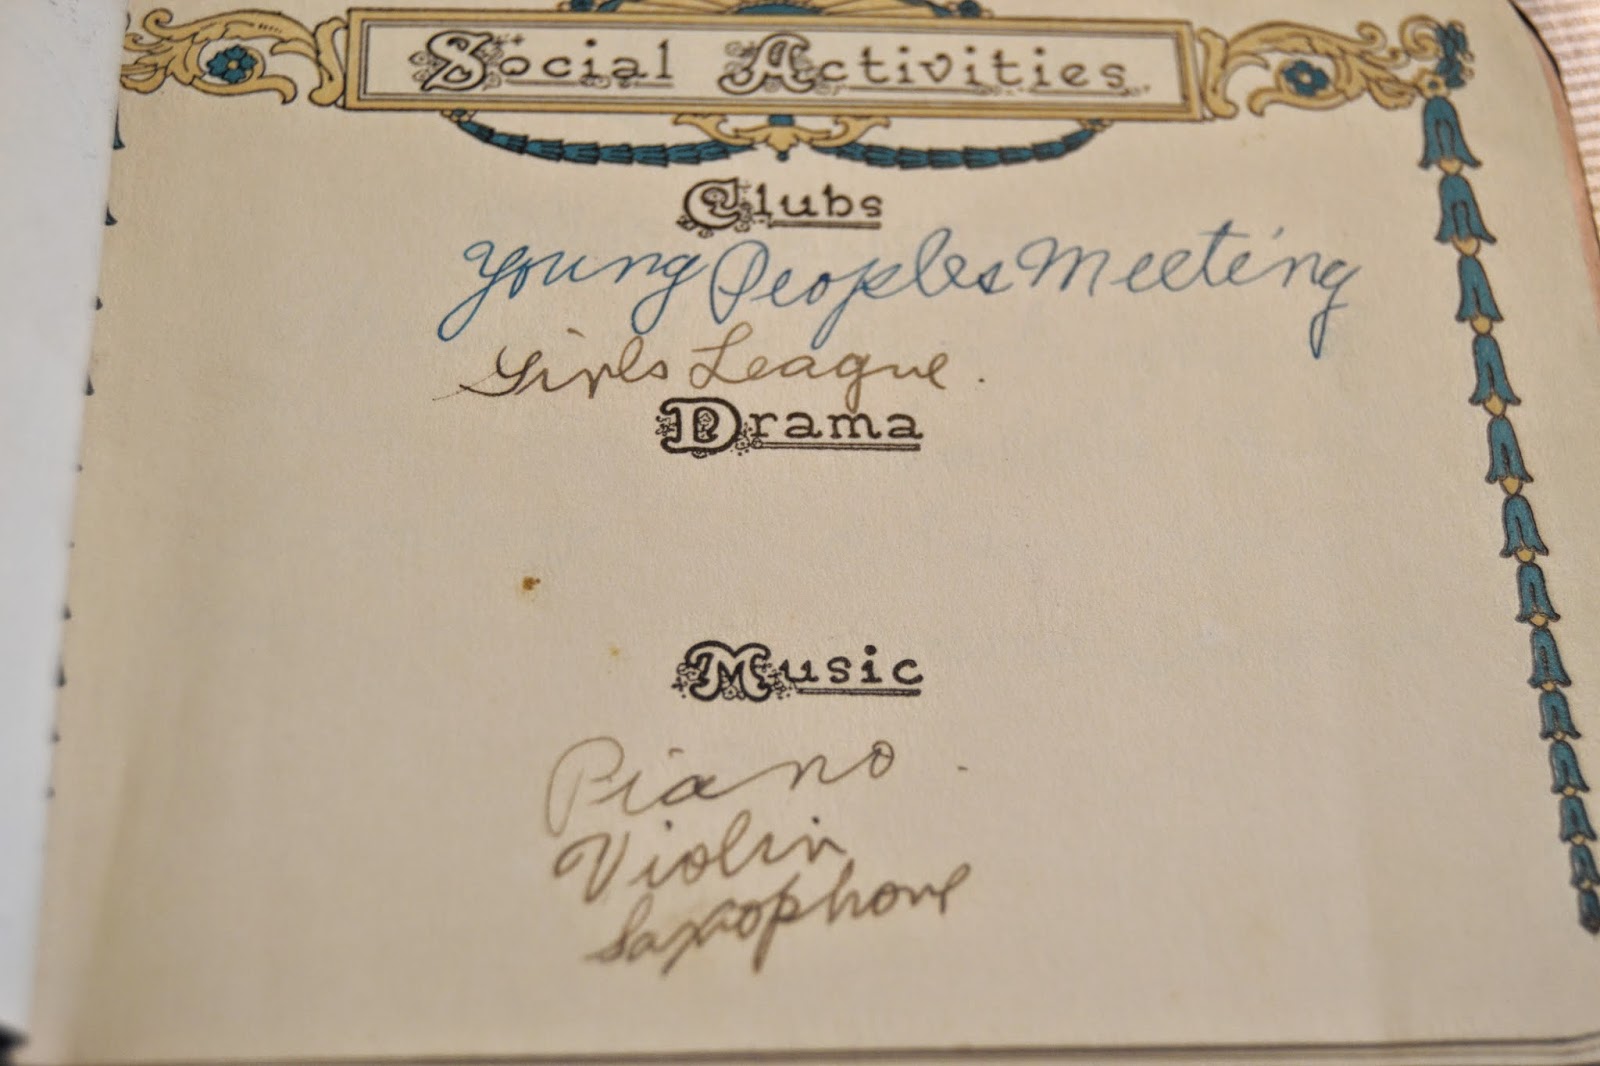 Social Activities
Clubs
Young Peoples Meeting
Girls League.
Drama
Music
Piano.
Violin
Saxophone